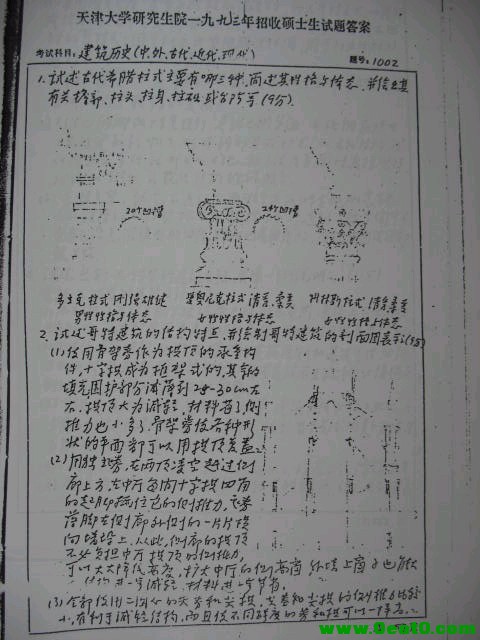 天津大学研究生院一九九三年招收硕士生试题答案
考试科目：建筑历史(中、外、古代、近代、现代)
题号：1002
1. 试述古代希腊柱式主要有哪三种，简述其性格与体态，并绘出其
有关檐部、柱头、柱身、柱础 (9分).
20个凹槽
24个凹槽
多立克柱式 刚强雄健
男性性格与体态
爱奥尼克柱式 清秀、柔美
女性性格与体态
科林斯柱式
2. 试述哥特建筑的结构特点，并绘制哥特建筑的剖面图表示(9分)
(1) 使用骨架券作为拱顶的承重构
件，十字拱成为框架式的，其余的
填充围护部分减薄到25-30cm左
右，拱顶大为减轻，材料省了，侧
推力也小多了，骨架券使各种形
状的平面都可以用拱顶覆盖。
(2) 用独立飞券，在两顶凌空越过侧
廊上方，在中厅每间十字拱四角
的起脚抵住它的侧推力，飞券
落脚在侧廊外侧的一片片横
向墙垛上，从此，侧廊的拱顶
不必负担中厅拱顶的侧推力，
可以大大降低高度，扩大中厅的侧高窗
(3) 全部使用二圆心的尖券和尖拱，尖券和尖拱的侧推力比较
小，有利于减轻结构，而且使不同跨度的券和拱可以一样高。
www.8esto.com